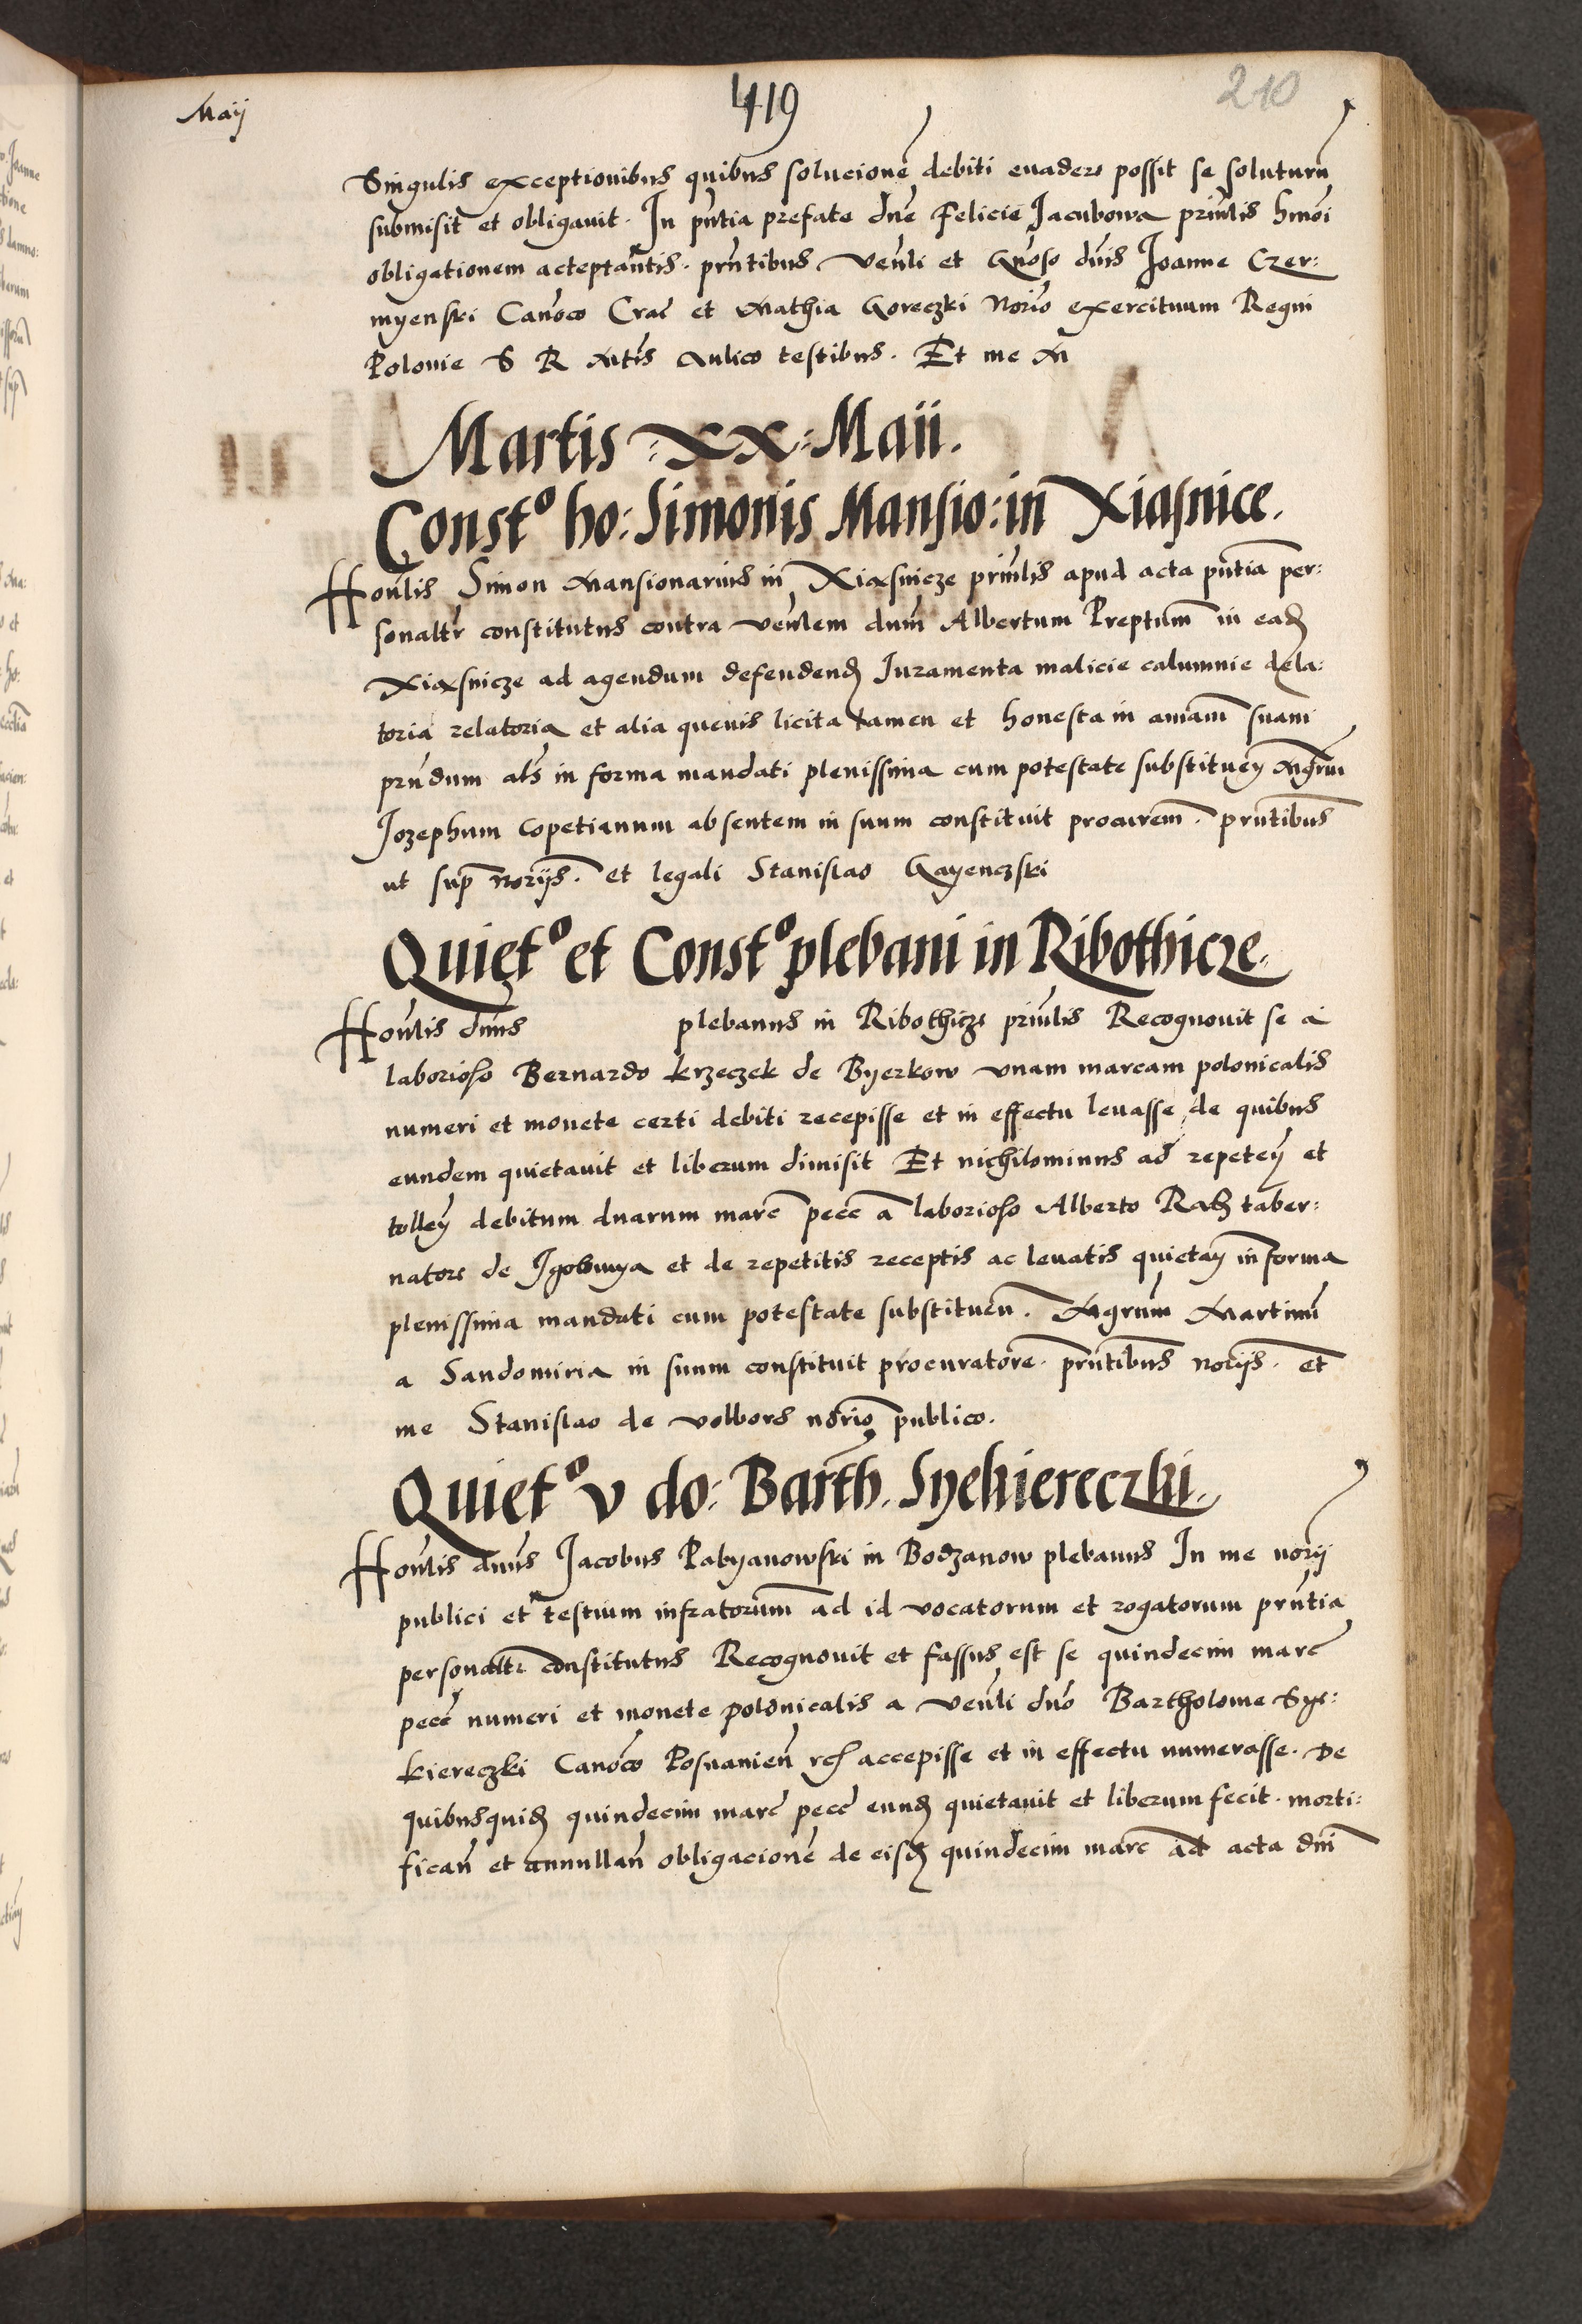 Maij
419
210
Singulis exceptionibus quibus solucionē debiti euadere possit se soluturū
submisit et obligauit. In pñtia prefate dñe Felicie Jacubowa priñlis hmõi
obligationem acteptañtis. prñtibus veñli et Gñoso dñis Joanne Czer:
myenski Cañoco Crac̄ et Mathia Goreczki Norio exercituum Regni
Polonie S R Mtis Aulico testibus. Et me M
Martis : XX : Maii.
Constº ho: Simonis Mansio: in Xiasnice.
Hoñlis Simon Mansionarius in Xiasnicze priñlis apud acta pñtia per:
sonaltr constitutus contra veñlem dum Albertum Preptum in ead
Xiasnicze ad agendum defendend Iuramenta malicie calumnie dela:
toria relatoria et alia queuis licita tamen et honesta in aniam suam
prñdum als in forma mandati plenissima cum potestate substituen Mgrm
Jozephum Copetianum absentem in suum constituit procurem. prñtibus
ut sup norijs. et legali Stanislao Gayenczski
Quietº et Constº plebani in Ribothicze.
Hoñlis dñus plebanus in Ribothicze priñlis Recognouit se a
laborioso Bernardo Krzeczek de Byerkow vnam marcam polonicalis
numeri et monete certi debiti recepisse et in effectu leuasse de quibus
eundem quietauit et liberum dimisit Et nichilominus ad repeten et
tollen debitum duarum marc̄ pecc̄ a laborioso Alberto Rak taber:
natore de Igolomya et de repetitis receptis ac leuatis quietan in forma
plenissima mandati cum potestate substituen. Mgrum Martinū
a Sandomiria in suum constituit procuratore. prñtibus norijs. et
me Stanislao de volbors nõrio publico.
Quietº v do: Barth. Syekiereczki.
Hoñlis dñus Jacobus Pabyanowski in Bodzanow plebanus In me norij
publici et testium infratorum ad id vocatorum et rogatorum prñtia
personaltr constitutus Recognouit et fassus est se quindecim marc̄
pecc̄ numeri et monete polonicalis a veñli dño Bartholome Sye:
kiereczki Canoco Posnanien̄ accepisse et in effectu numerasse. De
quibusquid quindecim marc̄ pecc̄ eund quietauit et liberum fecit. morti:
fican̄ et annullan̄ obligacionē de eisd quindecim marc̄ ad acta dñi